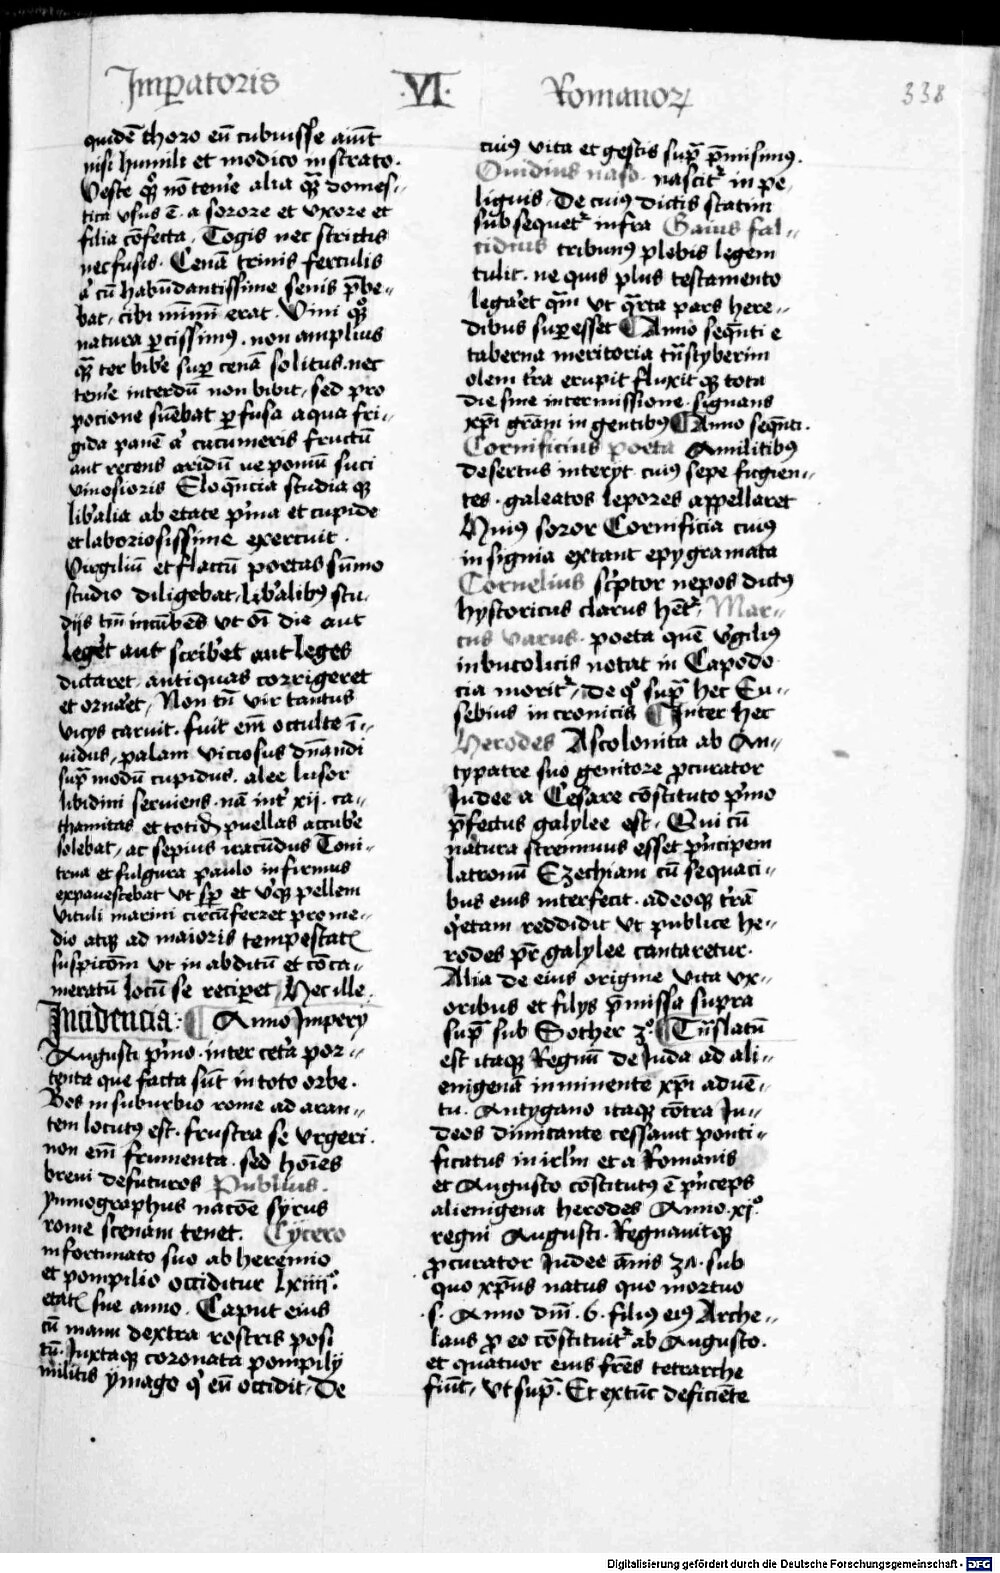 Imꝑatoris ·VI· Romanoꝝ
338
quidē thoro eū cubuisse aiūt
nisi humili et modico instrato.
Veste qͦꝫ nō tem̄e alia qͣ̄ domes-
tica vsus ē. a sorore et vxore et
filia cōfecta. Togis nec strictis
nec fusis. Cenā trinis ferculis
a᷑ cū habūdantissime senis p̄be-
bat. cibi mīmi erat. Vini qͦꝫ
natura ꝑcissimꝰ. non amplius
qͣ̄ ter bibe᷑ suꝑ cenā solitus. nec
tem̄e interdū non bibit, sed pro
pocione sūebat ꝑfusa aqua fri-
gida panē a᷑ cucumeris fructū
aut recens aridū ue pomū suci
vinosioris Eloq̄ncia studia qꝫ
lib̄alia ab etate p̄ma et cupide
et laboriosissime exercuit.
Virgiliū et flaccū poetas sūmo
studio diligebat, lib̄alibꝰ stu-
dijs tm̄ incūbēs vt oī die aut
leḡet aut scrib̄et aut leges
dictaret, antiquas corrigeret
et ornaret, Non tn̄ vir tantus
vicijs caruit. fuit em̄ occulte ī-
uidus, palam viciosus dn̄andi
sup̄ modū cupidus. alee lusor
libidini seruiens. nā int᷑ xij. ca-
thamitas et totidē puellas accub̄e
solebat, ac sepius iracūdus Toni-
trua et fulgura paulo infirmus
expauescebat vt sꝑ et vbiqꝫ pellem
vituli marini circūferret pro me-
dio atqꝫ ad maioris tempestatꝭ
suspicōm vt in abditū et cōca-
meratū locū se reciꝑet, Nec ille.
Incidencia: Anno Imperij
Augusti p̄mo. inter cet̄a por-
tenta que facta sūt in toto orbe.
Bos in suburbio rome ad aran-
tem locutꝰ est. frustra se vrgeri.
non em̄ frumenta. sed hoīes
breui defuturos Publius.
ymnographus natōe syrus
rome scenam tenet. Cycero
infortunato suo ab herennio
et pompilio occiditur lxiiijͦ.
etatꝭ sue anno. Caput eius
cū manu dextra rostris posi
tū. Juxtaqꝫ coronata pompilij
militis ymago q̇ eū occidit. De
cuiꝰ vita et gestis sup̄ p̄misimꝰ.
Ouidius naso. nascit᷑ in pe-
lignis. De cuiꝰ dictis statim
subsequet᷑ infra Gaius fal-
cidius tribunꝰ plebis legem
tulit. ne quis plus testamento
legaret qͣm vt qͣrta pars here-
dibus suꝑesset Anno seq̄nti e
taberna meritoria trāstyberim
olem t̄ra erupit fluxit qꝫ tota
die sine intermissione. signans
xp̄i grām in gentibꝰ Anno seq̄nti.
Cornificius poeta a militibꝰ
desertus interijt cuiꝰ sepe fugien-
tes. galeatos lepores appellaret
Huiꝰ soror Cornificia cuiꝰ
insignia extant epygramata
Cornelius sc̄ptor nepos dictꝰ
hystoricus clarus het᷑. Mar-
cus varus. poeta quē v̄gilius
in bucolicis notat in Capodo
cia morit᷑, de qͦ sup̄ hec Eu-
sebius in cronicis Inter hec
Herodes Ascolonita ab An-
typatre suo genitore ꝓcurator
Judee a Cesare cōstituto p̄mo
p̄fectus galylee est. Qui cū
natura strennuus esset p̄ncipem
latronū Ezechiam cū sequaci-
bus eius interfecit. adeoqꝫ t̄rā
q̇etam reddidit vt publice he-
rodes pr̄ galylee cantaretur.
Alia de eius origine vita vx-
oribus et filijs p̄missa supra
sup̄ sub Sother 3º. Trāslatū
est itaqꝫ Regnū de Juda ad ali-
enigenā in minente xp̄i aduē-
tu. Antygano itaqꝫ cōtra Ju-
deos dimicante cessauit ponti-
ficatus in irl̄m et a Romanis
et Augusto cōstitutꝰ ē p̄nceps
alienigena herodes Anno. xjͦ.
regni Augusti. Regnauitqꝫ
ꝓcurator Judee ānis 3ᴀ. sub
quo xp̄us natus quo mortuo
.s. Anno dn̄i. 6. filiꝰ eiꝰ Arche-
laus ꝓ eo cōstituit᷑ ab Augusto.
et quatuor eius fr̄es tetrarche
fiūt, vt sup̄. Et extūc deficiēte
Digitalisierung gefördert durch die Deutsche Forschungsgemeinschaft - DFG